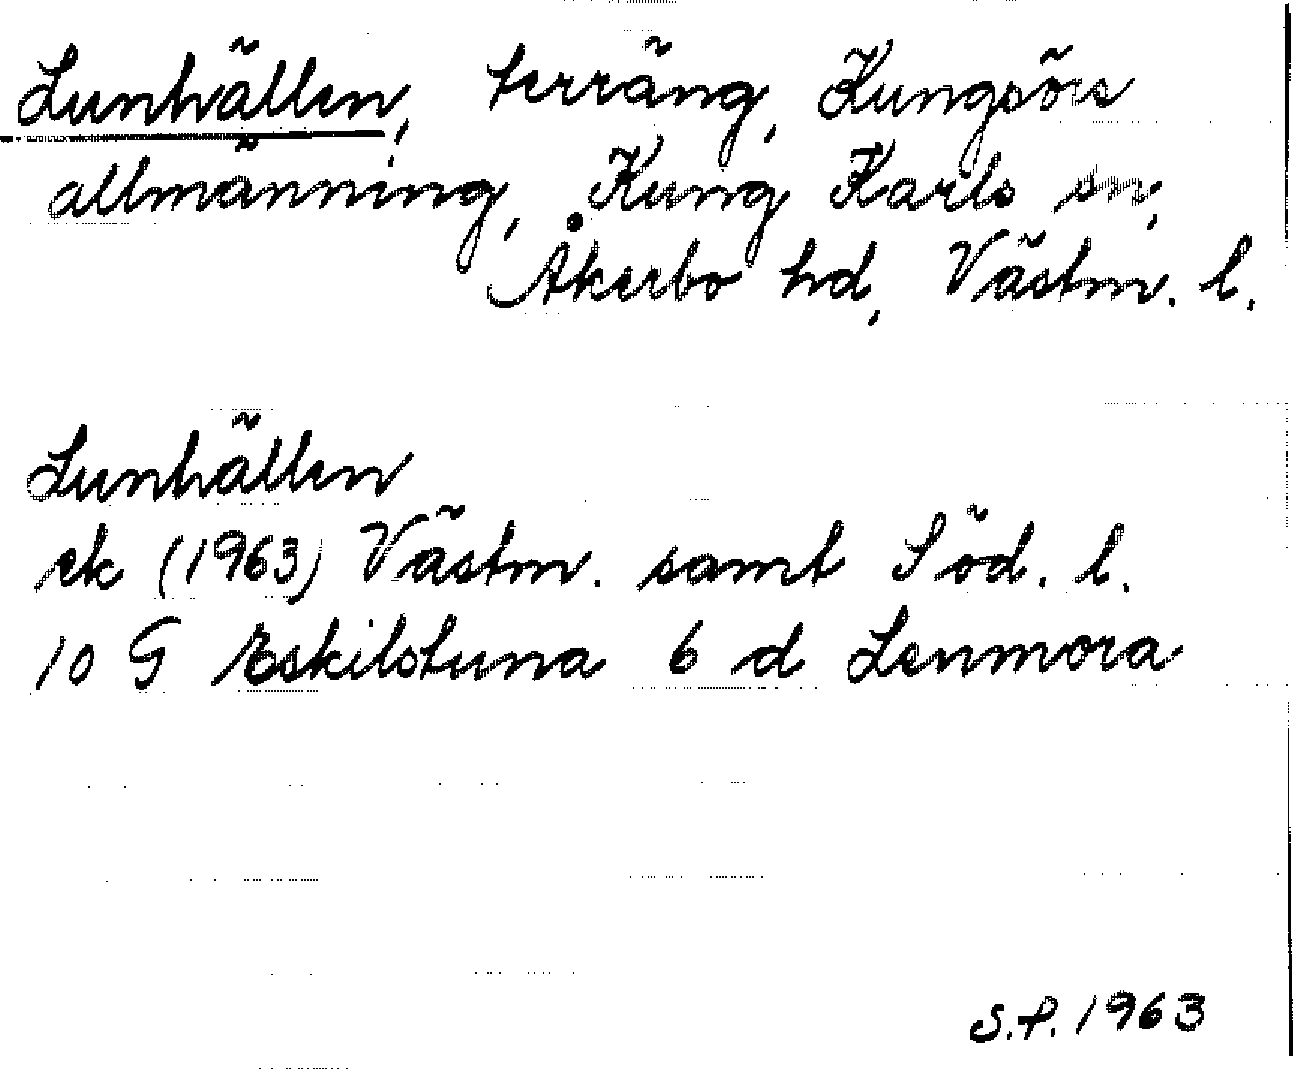 Lunhällen, terräng, Kungsörs
allmänning, Kung Karls sn,
Åkerbo hd, Västm. l.
Lunhällen
ek (1963) Västm. samt Söd. l.
10 G Eskilstuna 6 d Lenmora
S.P. 1963